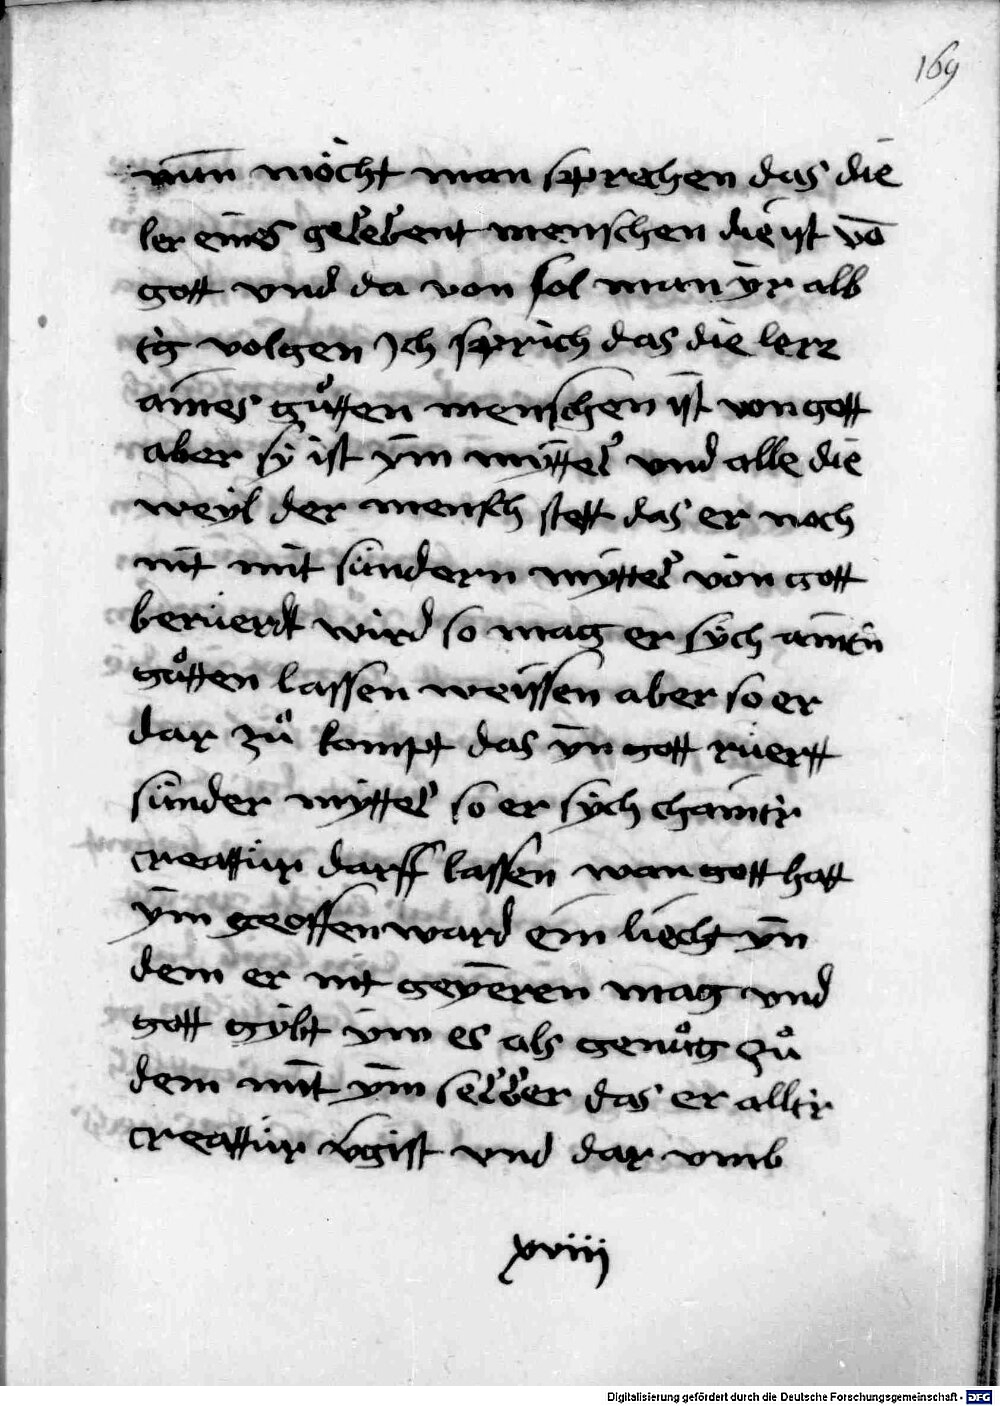 169
nun möcht man sprechen das die
ler eines gelebent menschen die ist vō
gott vnd da von sol man yr alb
tzg volgen Jch sprich das die lerr
aines gůtten menschen ist von gott
aber sy ist ym myttel vnd alle die
weyl der mensch stett das er noch
nit mit sundern myttel von gott
beruerdt wird so mag er sych
gůtten lassen weyssen aber so er
dar zů kompt das yn gott ruertt
sunder myttel so er sych chainer
creattur darff lassen wan gott hatt
ym geoffenward ein liecht yn
dem er nit geyeren mag vnd
gott gybt ym es als genůg zů
dem mit ym selber das er aller
creattur vgist vnd dar vmb
xviii
Digitalisierung gefördert durch die Deutsche Forschungsgemeinschaft - DFG